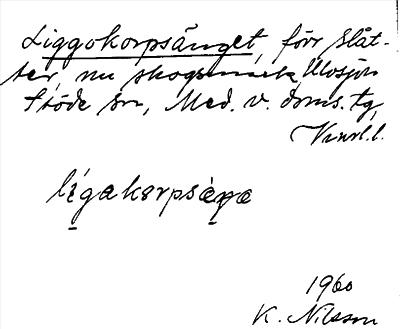 Liggokorpsänget, förr slåt-
ter, nu skogsmark, Ulosjön
Stöde sn, Med. v. doms. tg,
l.
lígakorpsèŋe
1960
K. Nilsson